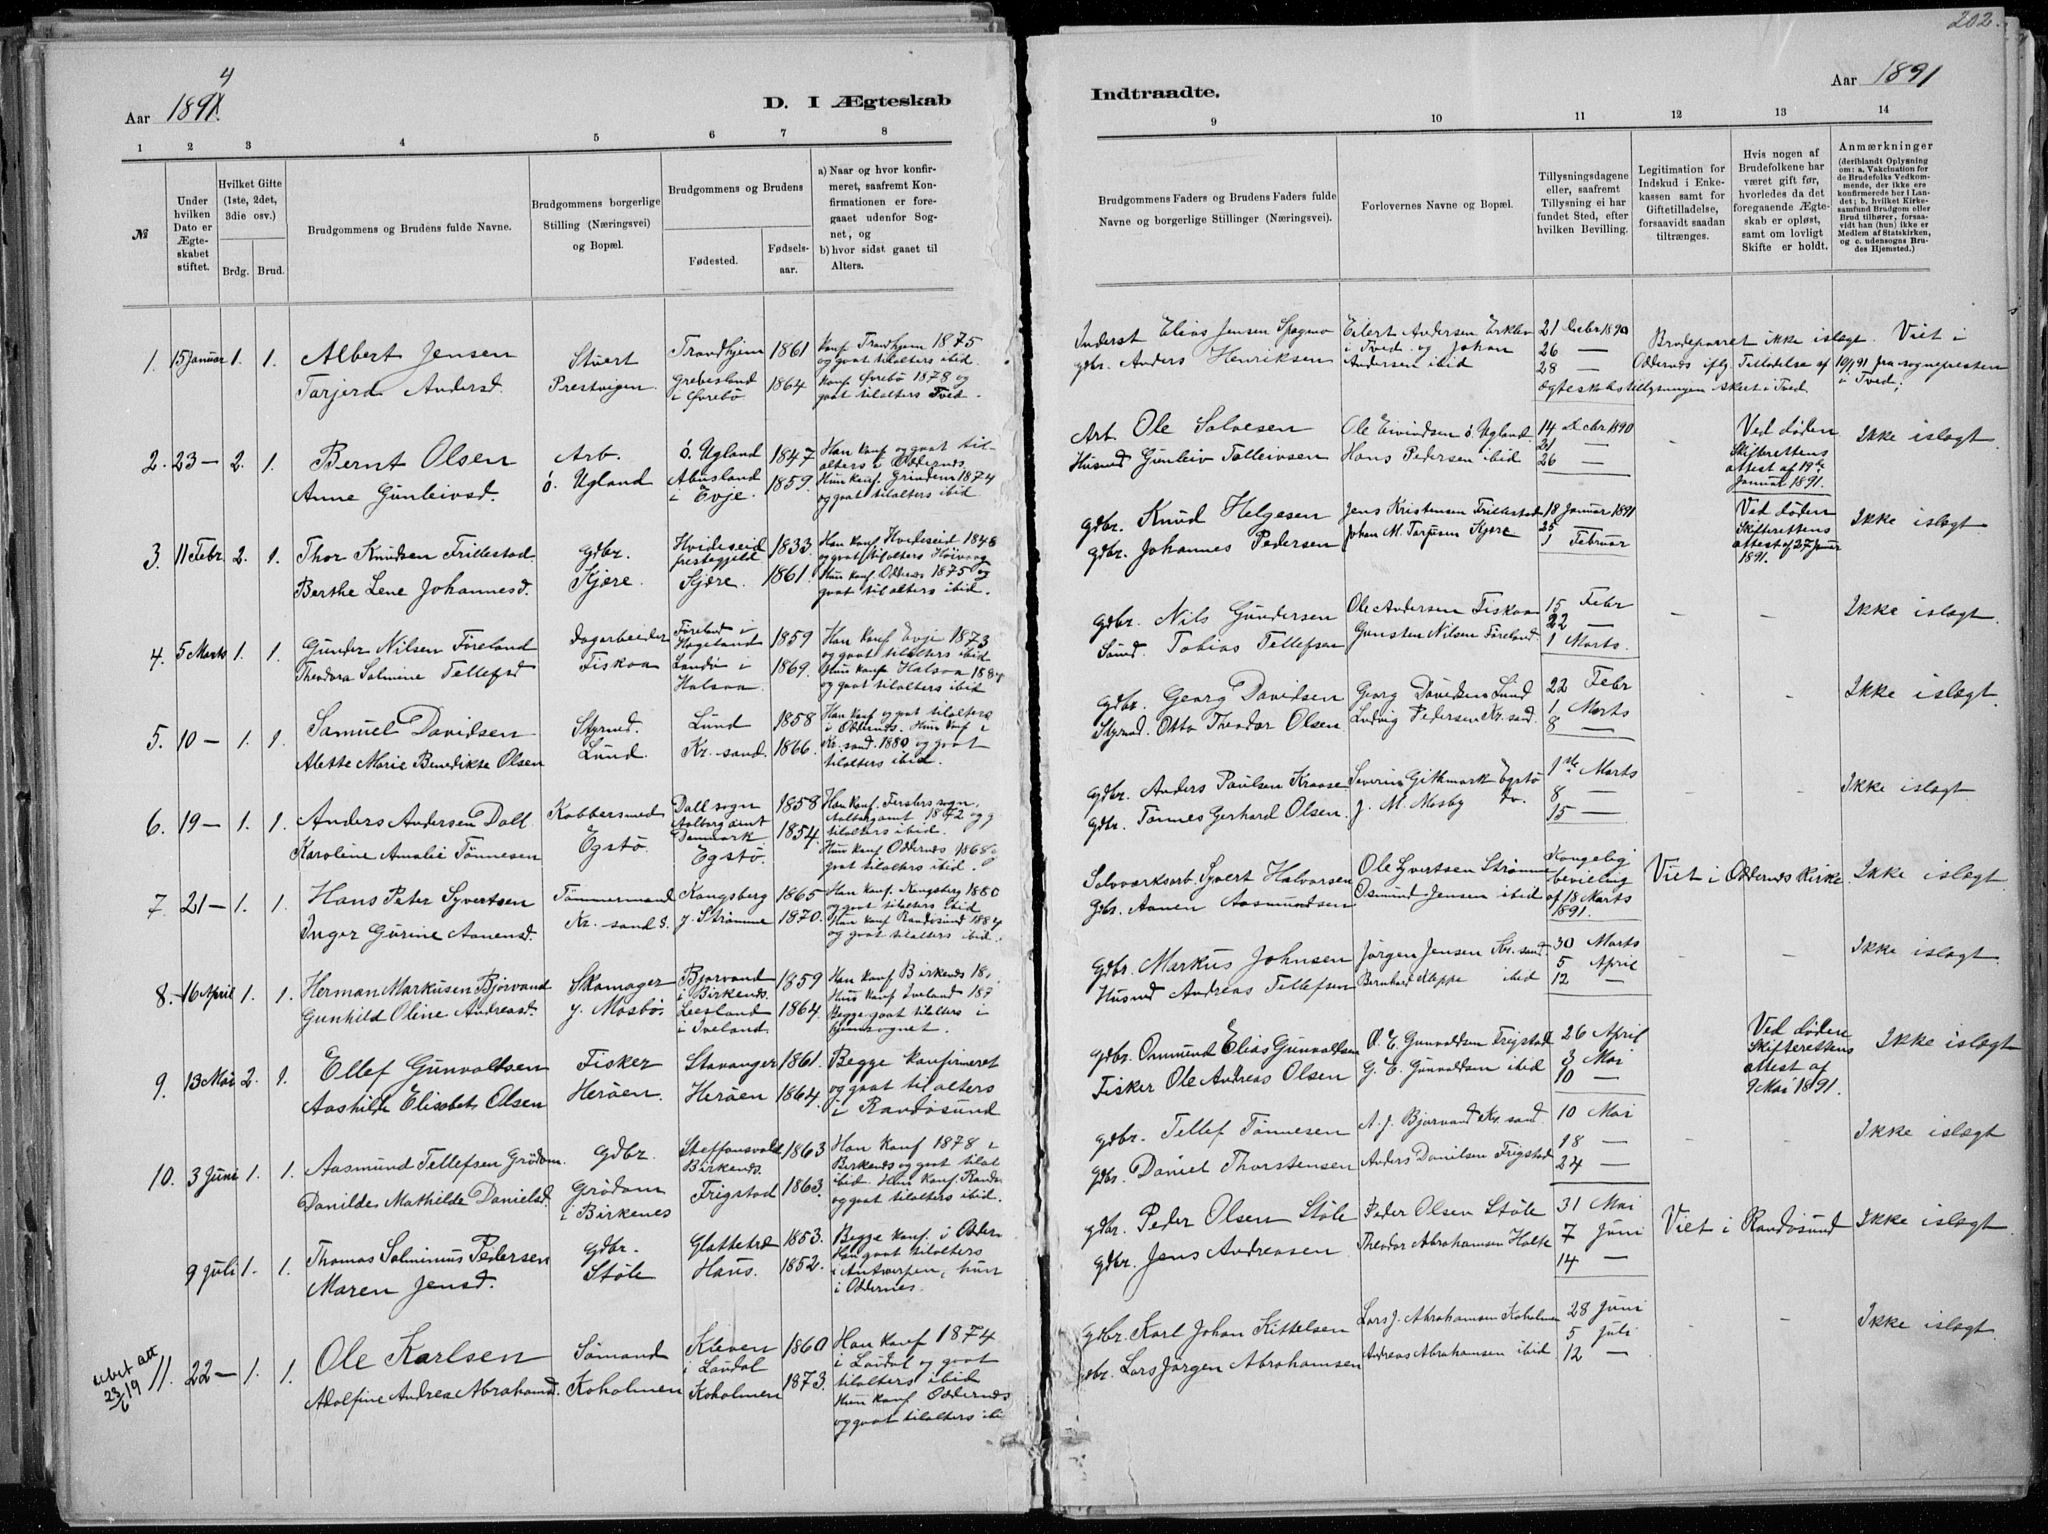 202.
4
Aar 1891.
D. I Ægteskab
Indtraadte.
Aar 1891
1 2 3 4 5 6 7 8
9 10 11 12 13 14
№
Under hvilken Dato er Ægteskabet stiftet.
Hvilket Gifte (1ste, 2det, 3die osv.)
Brdg. Brud.
Brudgommens og Brudens fulde Navne.
Brudgommens borgerlige Stilling (Næringsvei) og Bopæl.
Brudgommens og Brudens
Fødested.
Fødselsaar.
a) Naar og hvor konfirmeret, saafremt Konfirmationen er foregaaet udenfor Sognet, og
b) hvor sidst gaaet til Alters.
Brudgommens Faders og Brudens Faders fulde Navne og borgerlige Stillinger (Næringsvei).
Forlovernes Navne og Bopæl.
Tillysningsdagene eller, saafremt Tillysning ei har fundet Sted, efter hvilken Bevilling.
Legitimation for Indskud i Enkekassen samt for Giftetilladelse, forsaavidt saadan tiltrænges.
Hvis nogen af Brudefolkene har været gift før, hvorledes da det foregaaende Ægteskab er opløst, samt om lovligt Skifte er holdt.
Anmærkninger
(deriblandt Oplysning om: a. Vakcination for de Brudefolks Vedkommende, der ikke ere konfirmerede her i Landet; b. hvilket Kirkesamfund Brudgom eller Brud tilhører, forsaavidt han (hun) ikke er Medlem af Statskirken, og c. udensogns Brudes Hjemsted.)
1. 15 Januar 1. 1. Albert Jensen
Tarjerd Andersd.
Stuert
Prestvigen.
Trondhjem 1861
Grevesland i Øvrebö 1864
Konf Trondhjem 1875
og gaat tilalters ibid.
Konf Øvrebö 1878 og
gaat tilalters Tved.
Inderst Elias Jensen Spogmo
gdbr. Anders Henriksen
Eilert Andersen
i Tved og Johan
Andersen ibid
21 Decbr 1890
26 —
28 —
Brudeparret ikke islægt. Viet i
Oddernes iflg. Tilladelse af 10/1 91 fra sognepresten
Ægteskabstillysningen skeet i Tved. i Tved;
2. 23 — 2. 1. Bernt Olsen
Anne Gunleivsd.
Arb.
ö. Ugland
ö. Ugland 1847
Abusland
i Evje. 1859.
Han konf og gaat til-
alters i Oddernes.
Hun konf. Grindem 1874
og gaat tilalters ibid.
Arb. Ole Salvesen
Husmd Gunleiv Tolleivsen
Ole Eivindsen ö. Ugland
Hans Pedersen ibid
14 Decbr 1890
21 —
26 —
-
Ved döden
Skifterettens
attest af 19de
Januar 1891.
Ikke islægt.
3. 11 Febr 2. 1. Thor Knudsen Frillestad
Berthe Lene Johannesd.
gdbr.
Kjære.
Hvideseid
prestegjeld 1833.
Kjære. 1861.
Han konf Hvideseid 1848
og gaat tilalters Höivaag
Hun konf. Oddernes 1875 og
gaat tilalters ibid.
gdbr. Knud Helgesen
gdbr. Johannes Pedersen
Jens Kristensen Frillestad
Johan M. Torjusen Kjære
18 Januar 1891
25 —
1 Februar
Ved döden
Skifterettens
attest af 27 Januar
1891.
Ikke islægt
4. 5 Marts 1. 1. Gunder Nilsen Föreland
Theodora Salmine Tellefsd
Dagarbeider
Fiskaa
Föreland i
Hægeland 1859
Landö i
Halsaa 1869.
Han konf Evje 1873
og gaat tilalters ibid
Hun konf Halsaa 1884
og gaat tilalters ibid
gdbr. Nils Gundersen
Sømd. Tobias Tellefsen
Ole Andersen Fiskaa
Gunsten Nilsen Föreland.
15 Febr
22 —
1 Marts.
- - Ikke islægt.
5. 10 — 1. 1. Samuel Davidsen
Alette Marie Benedikte Olsen
Styrmd.
Lund.
Lund 1858
Kr. sand. 1866.
Han konf og gaat tilalters
i Oddernes. Hun konf i
Kr. sand. 1880 og gaat
tilalters ibid.
gdbr. Georg Davidsen
Styrmd. Otto Theodor Olsen
Georg Davidsen Lund
Ludvig Pedersen Kr. sand.
22 Febr
1 Marts
8 —
- - Ikke islægt.
6. 19 — 1. 1. Anders Andersen Dall
Karoline Amalie Tönnesen
Kobbersmed
Egstö.
Dall sogn
Aalborg amt
Danmark 1858
Egstö. 1854.
Han konf. Ferslevs sogn,
Aalborg amt 1872 og g
tilalters ibid.
Hun konf Oddernes 1868 og
gaat tilalters ibid.
gdbr. Anders Paulsen Kraase
gdbr. Tönnes Gerhard Olsen
Severin Githmark Egstö
J. M. Mosby do.
1ste Marts
8 —
15 —
- - Ikke islægt
7. 21 — 1. 1. Hans Peter Syvertsen
Inger Gurine Aanensd.
Tömmermand
Kr. sand S.
Kongsberg 1865
y. Strömme 1870.
Han konf. Kongsberg 1880
og gaat tilalters ibid
Hun konf Randösund 1884
og gaat tilalters ibid.
Sölvværksarb. Syvert Halvorsen
gbr. Aanen Aasmundsen
Ole Syvertsen Strömme
Osmund Jensen ibid
Kongelig
bevilling
af 18 Marts
1891.
Viet i Oddernes kirke. Ikke islægt.
8. 16 April 1. 1. Herman Markusen Bjorvand
Gunhild Oline Andreasd.
Skomager
y. Mosbö.
Bjorvand
i Birkenes 1859
Leesland
i Iveland. 1864.
Han konf Birkenes 18
Hun konf Iveland 187
Begge gaat tilalters i
hjemsognet.
gdbr. Markus Johnsen
Husmd Andreas Tellefsen
Jörgen Jensen Kr. sand.
Bernhard Kloppe ibid
30 Marts
5 April
12 —
- - Ikke islægt
9. 13 Mai 2. 1. Ellef Gunvaldsen
Aashilde Elisabet Olsen
Fisker
Heröen.
Stavanger 1861.
Heröen 1864.
Begge konfirmeret
og gaat tilalters
i Randösund
gdbr. Ommund Elias Gunvaldsen
Fisker Ole Andreas Olsen
O. E. Gunvaldsen Frigstad
G. E. Gunvaldsen ibid
26 April
3 Mai
10 —
Ved döden
Skifterettens
attest af
9 Mai 1891.
Ikke islægt
10. 3 Juni 1. 1. Aasmund Tellefsen Grödem.
Danilde Mathilde Danielsd.
gdbr.
Grödem
i Birkenes
Steffansvold
Birkenes. 1863
Frigstad 1863.
Han konf 1878 i
Birkenes og gaat tilal
ibid. Hun konf. Randö
og gaat tilalters ibid.
gdbr. Tellef Tönnesen
gdbr. Daniel Thorstensen
A. J. Bjorvand Kr. sand
Anders Danilsen Frigstad
10 Mai
18 —
24 —
- - Ikke islægt
9 Juli 1. 1. Thomas Salminius Pedersen
Maren Jensd.
gdbr.
Stöle
Glattetre 1853.
Haus. 1852.
Begge konf. i Odder
Han gaat tilalters
i Antwerpen, hun
i Oddernes.
gdbr. Peder Olsen Stöle
gdbr. Jens Andreasen
Peder Olsen Stöle
Theodor Abrahamsen Holte
31 Mai
7 Juni
14 —
Viet i Randösund Ikke islægt
udvet att
23/6 19
11. 22 — 1. 1. Ole Karlsen
Adolfine Andrea Abrahamsd.
Sömand
Koholmen
Kleven
i Laudal 1860
Koholmen 1873.
Han konf 1874
i Laudal og gaat
tilalters ibid
Hun konf Oddernes
og gaat tilalters ibi
gdbr. Karl Johan Kittelsen
gdbr. Lars Jörgen Abrahamsen
Lars J. Abrahamsen Koholmen
Andreas Abrahamsen ibid
28 Juni
5 Juli
12 —
- - Ikke islægt.